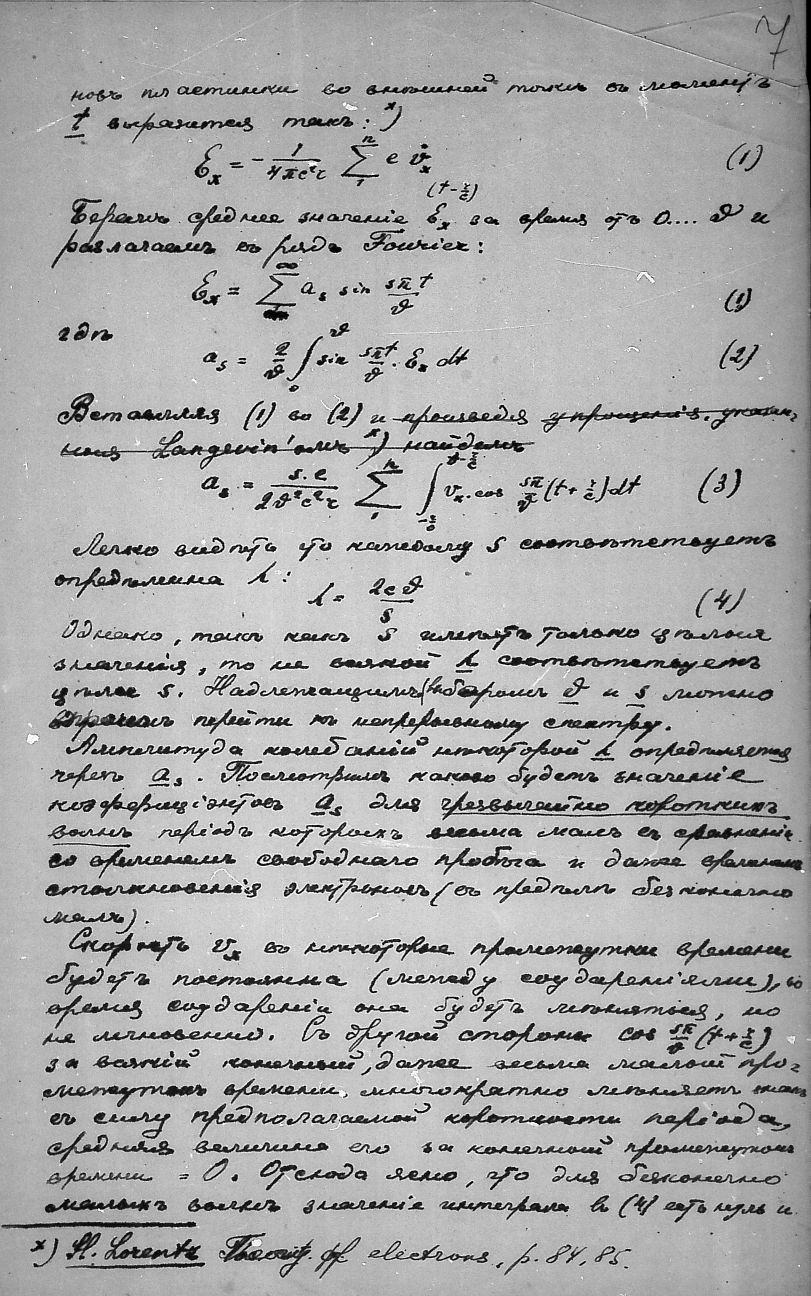 7
новъ пластинки во внѣшней точкѣ въ моментъ
t выразится такъ: х)
Ɛx = - 1/4πc²r Σ₁ⁿ e v̇x (t - r/c) (1)
Беремъ среднее значеніе Ɛx за время отъ 0.... ϑ и
разлагаемъ въ рядъ Fourier:
Ɛx = Σ^∞ as sin sπt/ϑ (1)
гдѣ
as = 2/ϑ ∫₀^ϑ sin sπt/ϑ . Ɛx dt (2)
Вставляя (1) во (2) и произведя упрощенія, указан-
ныя Langevin'омъ х) найдемъ
as = s.e/2ϑ²c²r Σ₁ⁿ ∫ vx . cos sπ/ϑ (t + r/c) dt (3)
Легко видѣть что каждому s соотвѣтствуетъ
опредѣленна λ:
λ = 2cϑ/s (4)
Однако, такъ какъ s имѣетъ только цѣлыя
значенія, то не всякой λ соотвѣтствуетъ
цѣлое s. Надлежащимъ выборомъ ϑ и s можно
перейти къ непрерывному спектру.
Амплитуда колебаній нѣкоторой λ опредѣляется
черезъ as. Посмотримъ каково будетъ значеніе
коэффиціэнтовъ as для чрезвычайно короткихъ
волнъ періодъ которыхъ весьма малъ въ сравненіи
со временемъ свободнаго пробѣга и даже временемъ
столкновенія электроновъ (въ предѣлѣ безконечно
малъ).
Скорость vx въ нѣкоторые промежутки времени
будетъ постоянна (между соудареніями), во
время соударенія она будетъ мѣняться, но
не мгновенно. Съ другой стороны cos sπ/ϑ (t + r/c)
за всякій конечный, даже весьма малый про-
межутокъ времени, многократно мѣняетъ знакъ
въ силу предполагаемой короткости періода,
средняя величина его за конечный промежутокъ
времени = 0. Отсюда ясно, что для безконечно
малыхъ волнъ значеніе интеграла въ (4) есть нуль и
х) H. Lorentz Theory of electrons, p. 84, 85.